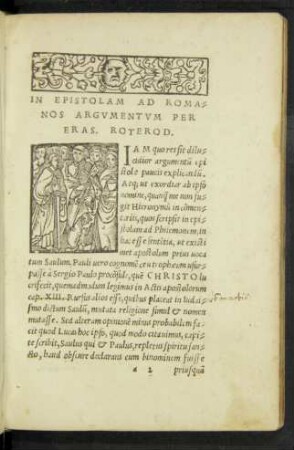 IN EPISTOLAM AD ROMA-
NOS ARGVMENTVM PER
ERAS. ROTEROD.
IAM quo res sit dilu-
cidior argumentũ epi-
stolę paucis explicabũ.
Atq; ut exordiar ab ipso
nomine, quanq̃ me non fugit
Hieronymũ in cõmen-
tarijs, quos scripsit in epi-
stolam ad Philemonem, in
hac esse sententia, ut existi
met apostolum prius uoca
tum Saulum, Pauli uero cognomẽ ceu trophęum usur
passe à Sergio Paulo procõsule, quẽ CHRISTO lu
crifecit, quemadmodum legimus in Actis apostolorum
cap. XIII. Rursus alios esse, quibus placeat in Iudais
smo dictum Saulũ, mutata religione simul & nomen
mutasse. Sed alteram opinionẽ minus probabilem fa
cit quod Lucas hoc ipso, quod modo citauimus, capi-
te scribit, Saulus qui & Paulus, repletus spiritu san-
cto, haud obscure declarans eum binominem fuisse
a 2 priusquã